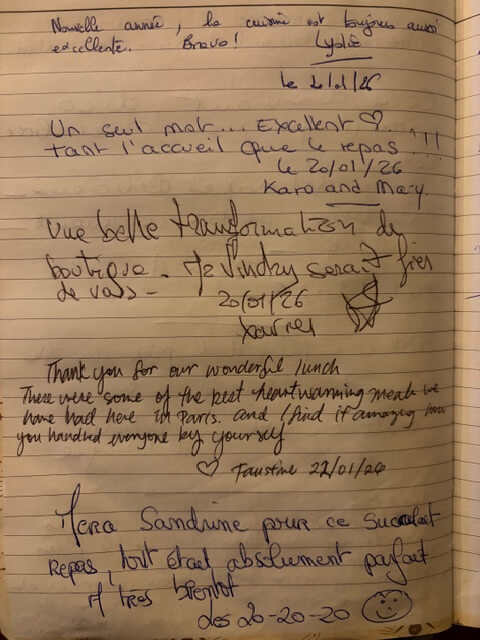 Nouvelle année, la cuisine est toujours aussi
excellente. Bravo! Lydie
le 20/01/26
Un seul mot... Excellent ♡ !!!
tant l'accueil que le repas
le 20/01/26
Karo and Mary.
belle transformation de
boutique.
de vous -
20/01/26
Thank you for our wonderful lunch
These were some of the best heartwarming meals we
have had here in Paris. and I find it amazing how
you handled everyone by yourself
♡ Faustine 22/01/26
Merci Sandrine pour ce succulent
Repas, tout était absolument parfait
A très bientôt
des 20-20-20